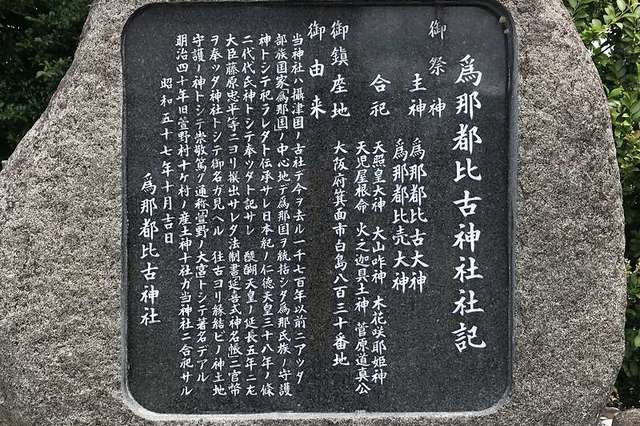 爲那都比古神社社記
御祭神
主神　爲那都比古大神
爲那都比売大神
合祀　天照皇大神　大山咋神　木花咲耶姫神
天児屋根命　火之迦具土神　菅原道真公
御鎮座地　大阪府箕面市白島八百三十番地
御由来
当神社ハ攝津国ノ古社デ今ヲ去ル一千七百年以前ニアッタ
部族国家爲那国ノ中心地デ爲那国ヲ統括シタ爲那氏族ノ守護
神トシテ祀ラレタト伝承サレ日本紀ノ仁徳天皇三十八年ノ條
ニ代代氏神トシテ奉ッタト記サレ　醍醐天皇ノ延長五年ニ左
大臣藤原忠平等ニヨリ撰出サレタ法制書延喜式神名帳ニ官幣
ヲ奉ッタ神社トシテ御名ガ見ヘル　往古ヨリ縁結ビノ神土地
守護ノ神トシテ崇敬篤ク通称萱野ノ大宮トシテ著名デアル
明治四十年旧萱野村十ケ村ノ産土神十社ガ当神社ニ合祀サル
昭和五十七年十月吉日
爲那都比古神社